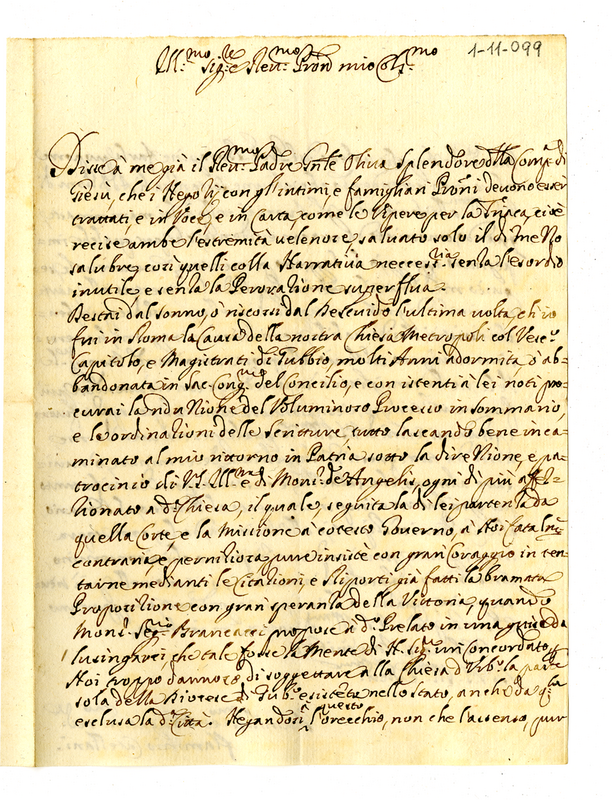 1-11-099
Ill.mo Sig.re e Rev.mo Pron mio Col.mo
Disse à me già il Rev.mo Padre Gn̄le Oliva splendore d̄lla Comp.a di
Giesù, che i Nepoti con gl'intimi, e famigliari Pron̄i devono esser
trattati, e in Voce, e in Carta, come le Vipere per la Triaca, cioè
recise ambe l'estremità velenose, salvato solo il di mezzo
salubre, così quelli colla Narrativa necess.ria senza l'esordio
inutile, e senza la Perorazione superflua.
Destai dal sonno, ò riscossi dal Rescuido l'ultima volta, ch'io
fui in Roma la Causa della nostra Chiesa Metropoli col Vesc.o
Capitolo, e Magistrati di Gubbio, molti Anni adormita, ò ab=
bandonata in Sac. Cong.ne del Concilio, e con istenti à lei noti pro=
curai la riduzzione del Voluminoso Processo in sommario,
e le ordinazioni delle scritture, tutto lasciando bene inca=
minato al mio ritorno in Patria sotto la direzzione, e pa=
trocinio di V.S. Ill.ma e di Mons.r de Angelis, ogni dì più affet=
zionato a d.a Chiesa, il quale, seguita la di lei partenza da
quella Corte, e la Missione à cotesto Governo, à Noi
contraria, e perniziosa, pure insistè con gran Coraggio in ten=
tarne medianti le Citazioni, e gli porti già fatti la bramata
Proposizione con gran speranza della Vittoria, quando
Mons.r Seg.rio Brancacci propose à d.o Prelato in una guisa da
lusingarci che tale fosse la Mente di N. Sig.re un Concordato p
Noi troppo dannoso, di soggettare alla Chiesa d'Urb.o la parte
sola della Diocese di Gub.o esistente nello stato, anche da q.ta
esclusa la d.a Città. Negandosi à questo l'orecchio, non che l'assenso, pur